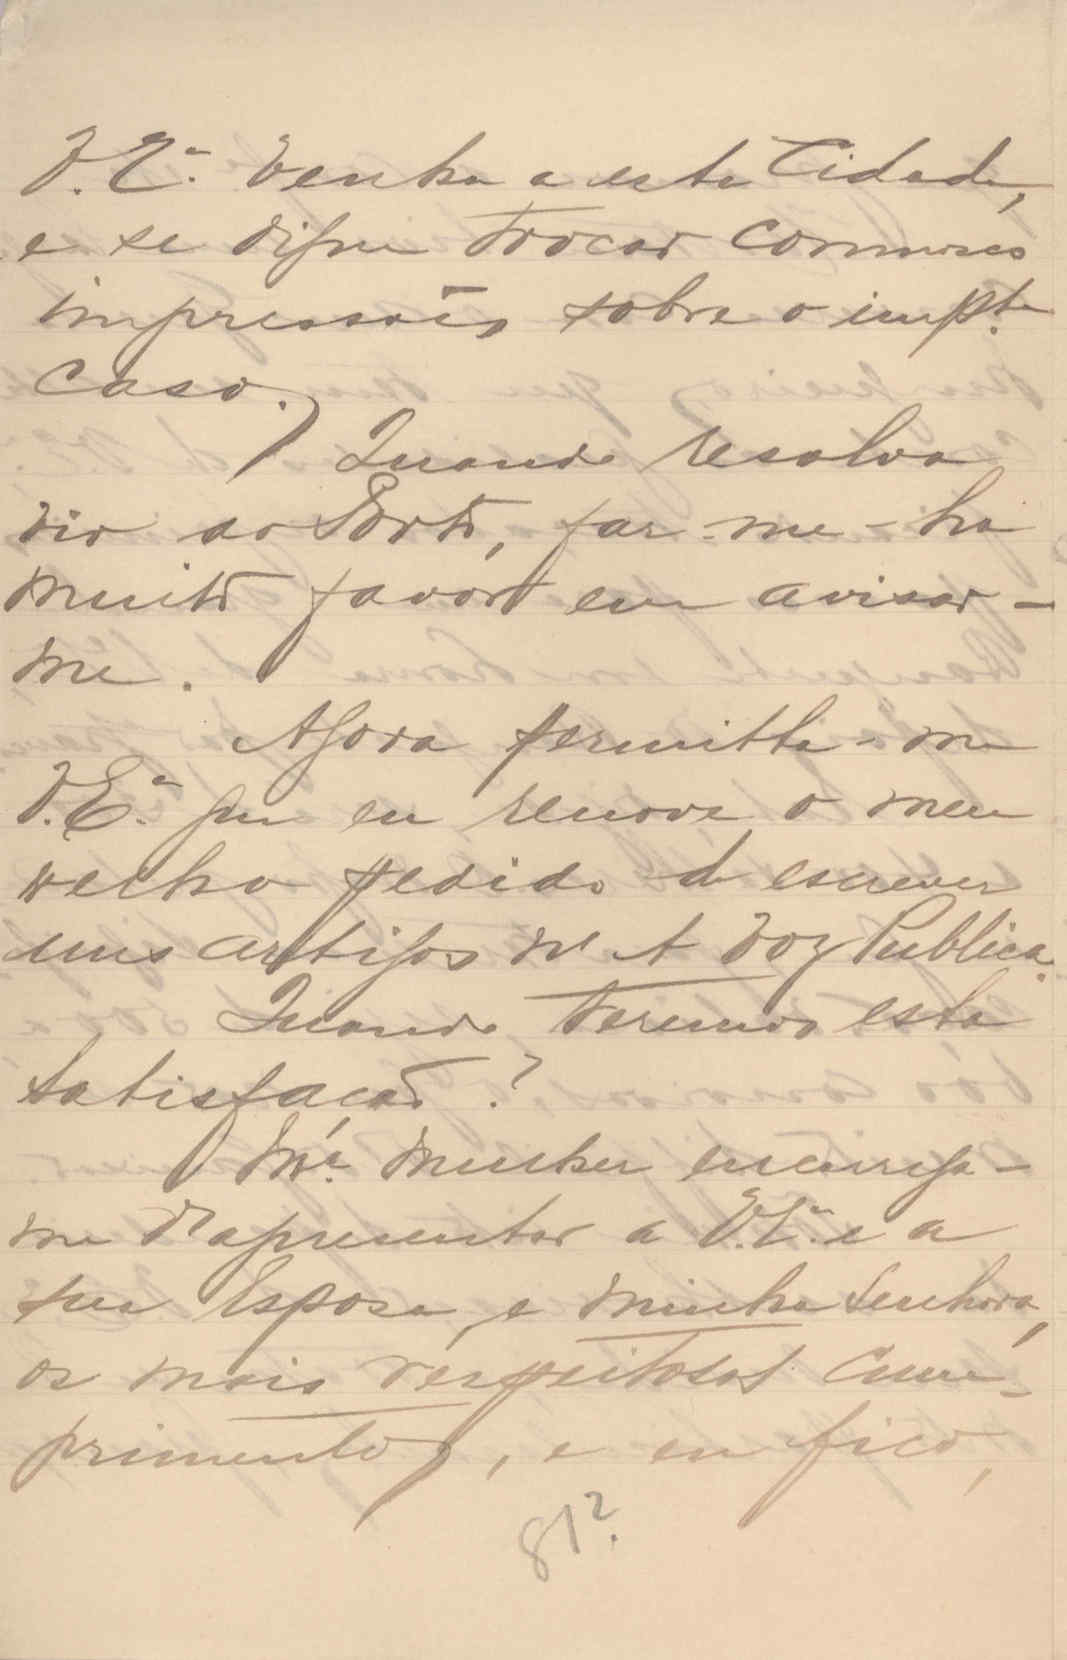 V. Ex.ª venha a esta Cidade,
e se digne trocar comnosco
impressões sobre o imp.te
caso.
Quando resolva
vir ao Porto, far-me-ha
muito favor em avisar-
me.
Agora permitta-me
V. Ex.ª que eu renove o meu
velho pedido de escrever
uns artigos n'A Voz Publica.
Quando teremos esta
satisfação?
M.ª mulher encarrega-
me d'apresentar a V. Ex.ª e a
sua Esposa, e minha Senhora,
os mais respeitosos cum-
primentos, e eu fico,
81?